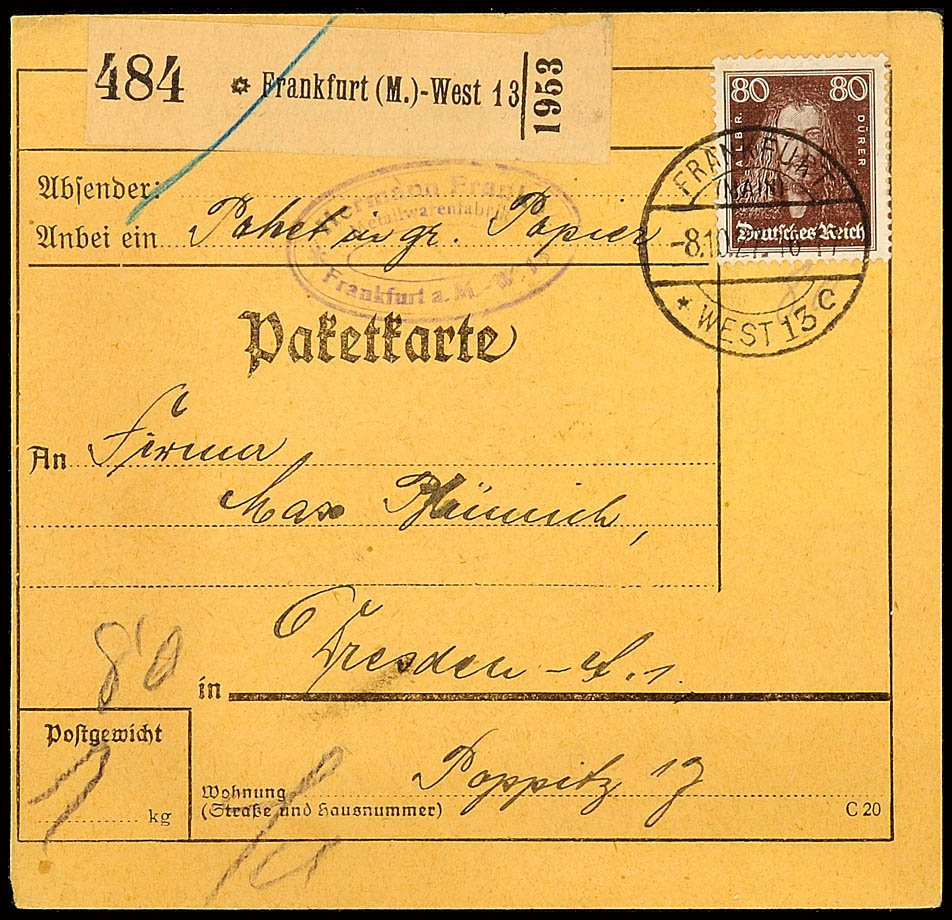 484 Frankfurt (M.)-West 13 1953
80 80
ALBR. DÜRER
Deutsches Reich
FRANKFURT
(MAIN)
-8.10.27.
* WEST 13 C
Absender:
Hermann Frank
Frankfurt a. M.-W. 13
Anbei ein Paket in gr. Papier
Paketkarte
An Firma
Max
in Dresden - A. 1.
80
Postgewicht
7 kg
Wohnung Poppitz 17
(Straße und Hausnummer)
C 20